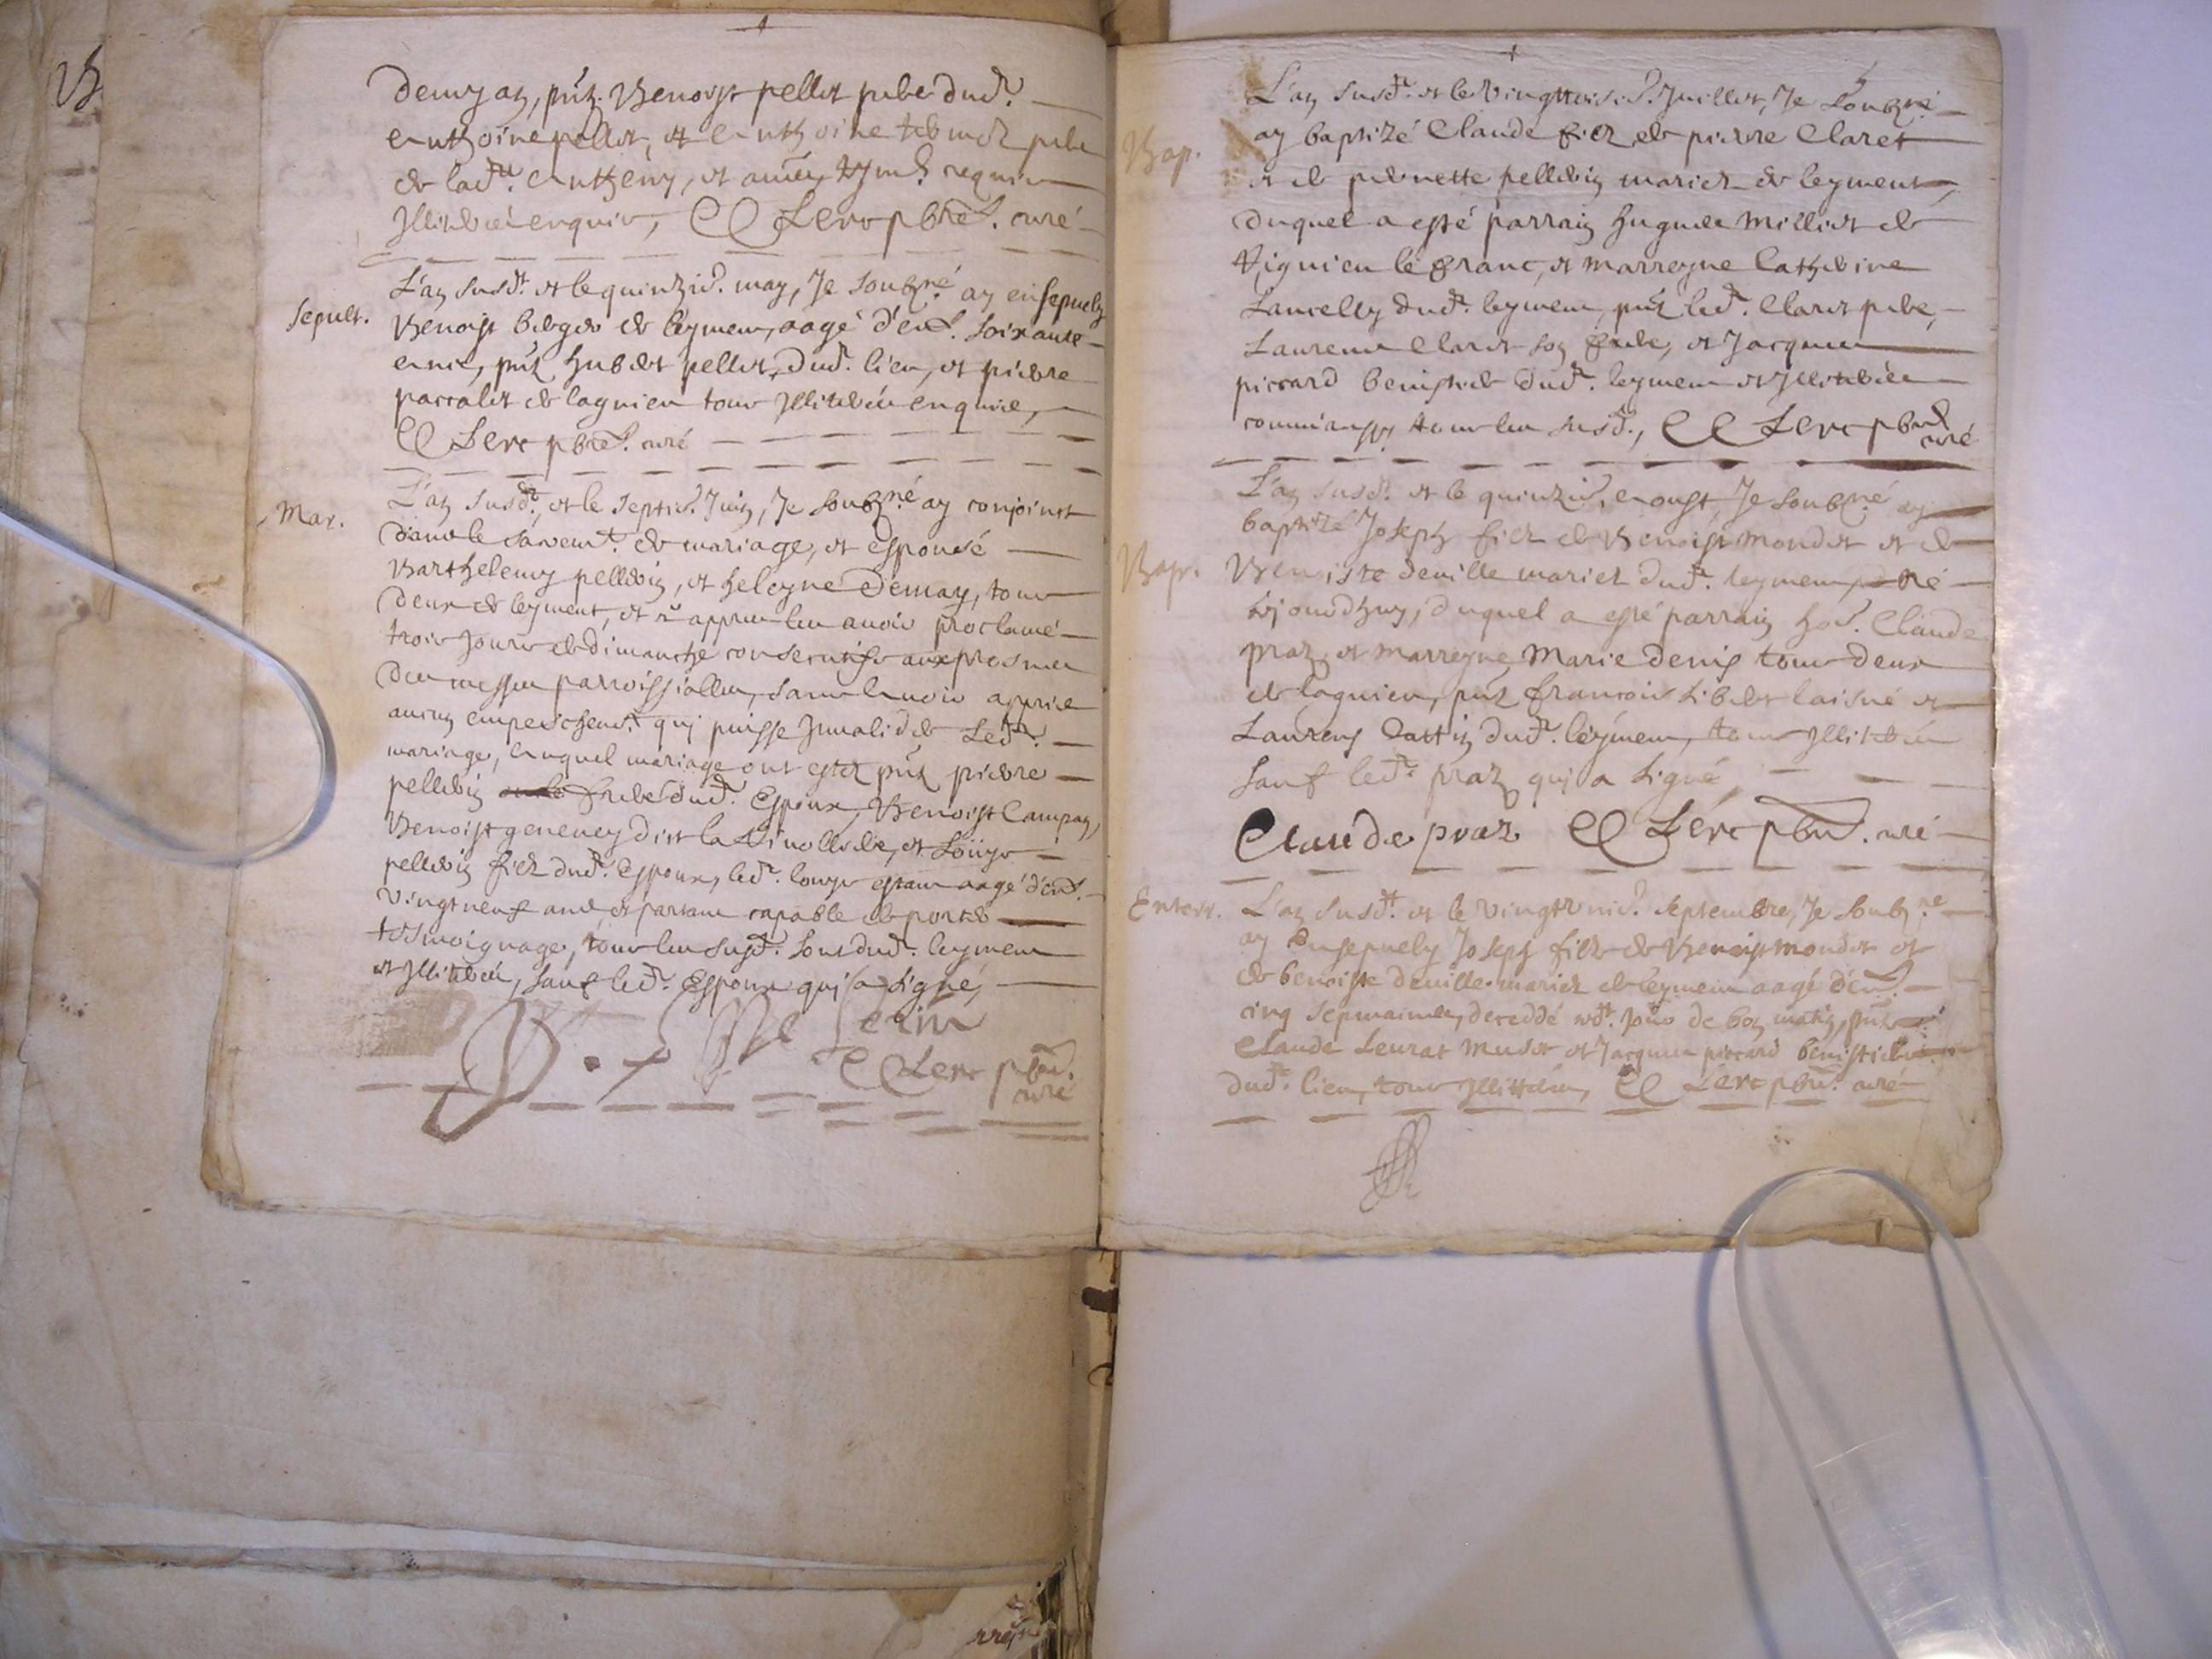 demy an, pñts Benoyst pellet pere dud.t
Anthoine pellet, et Anthoine pere
de lad.te Antheny, et requis
Illiterés enquis, C Lerc pbre. curé
Sepult.
L'an susd.t et le quinzie. may, Je soubz.né ay ensepuely
Benoist Berger de leymen, aagé d'env. soixante
ans, pñts Hubert pellet, dud. lieu, et pierre
parralet de lagnieu tous Illiterés enquis,
C Lerc pbre. curé
Mar.
L'an susd.t, et le septie. Juin, Je soubz.né ay conjoinct
dans le sacrem.t de mariage, et espousé
Barthelemy pellerin, et heleyne demay, tous
deux de leyment, et appres les avoir proclamé
trois jours de dimanche consecutifs aux prosnes
des messes parroissialles, sans avoir appris
aucun empeschem.t quj puisse Jnvalider led.t
mariage, auquel mariage ont estez pñts pierre
pellerin frere dud.t Espoux, Benoist Campan,
Benoist geneney dict la Violleste, et Louys
pellerin filz dud.t Espoux, led.t louys estant aagé d'env.
vingtneuf ans et partant capable de porter
tesmoignage, tous les susd.t sont dud.t leymen
et Illiterés, sauf led.t Espoux quj a signé,
B. pellerin
C Lerc pbre.
curé
Bap.
L'an susd.t et le vingttroisie. Juillet, Je soubz.né
ay baptizé Claude filz de pierre Claret
et de pernette pellerin mariez de leyment,
duquel a esté parrain hugues Milliet de
Vignieu le franc, et marreyne Catherine
Lancelly dud.t leymen, pñts led.t Claret pere,
Laurens Claret son frere, et Jacques
piccard benistier dud.t leymen et Illiterés
comme aussy tous les susd., C Lerc pbre
curé
Bap.
L'an susd.t et le quinzie. Aoust, Je soubz.né ay
baptizé Joseph filz de Benoist mondet et de
Benoiste deville mariez dud.t leymen, né
ce jourdhuy, duquel a esté parrain ho. Claude
praz, et marreyne Marie denis tous deux
de lagnieu, pñts francois liberet laisné et
Laurens Cattin dud.t leymen, tous Illiterés
sauf led.t praz quj a signé,
Claude praz C Lerc pbre. curé
Enterr.
L'an susd.t et le vingtunie. septembre, Je soubz.né
ay Ensepuely Joseph filz de Benoist mondet et
de benoiste deville mariez de leymen aagé d'env.
cinq sepmaines, decedé cedt. jour de bon matin, pñts
Claude Leurat Muset et Jacques piccard benistier
dud.t lieu, tous Illiterés, C Lerc pbre. curé